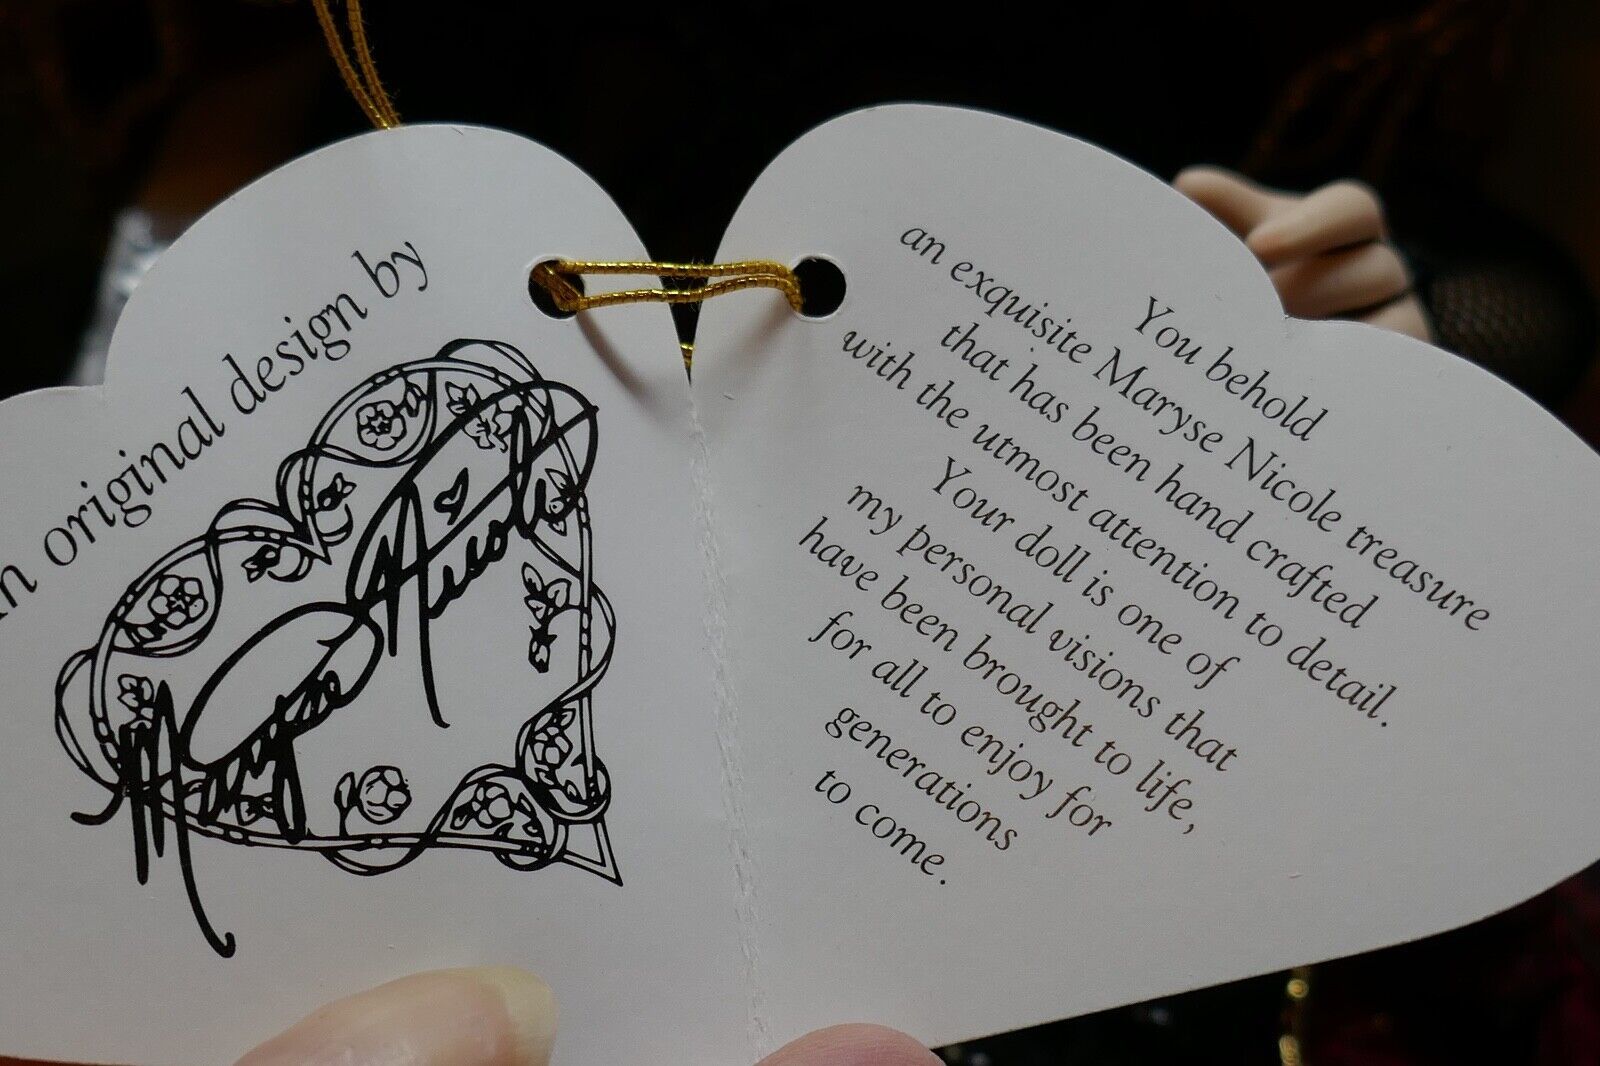 An original design by
Maryse Nicole
You behold
an exquisite Maryse Nicole treasure
that has been hand crafted
with the utmost attention to detail.
Your doll is one of
my personal visions that
have been brought to life,
for all to enjoy for
generations
to come.